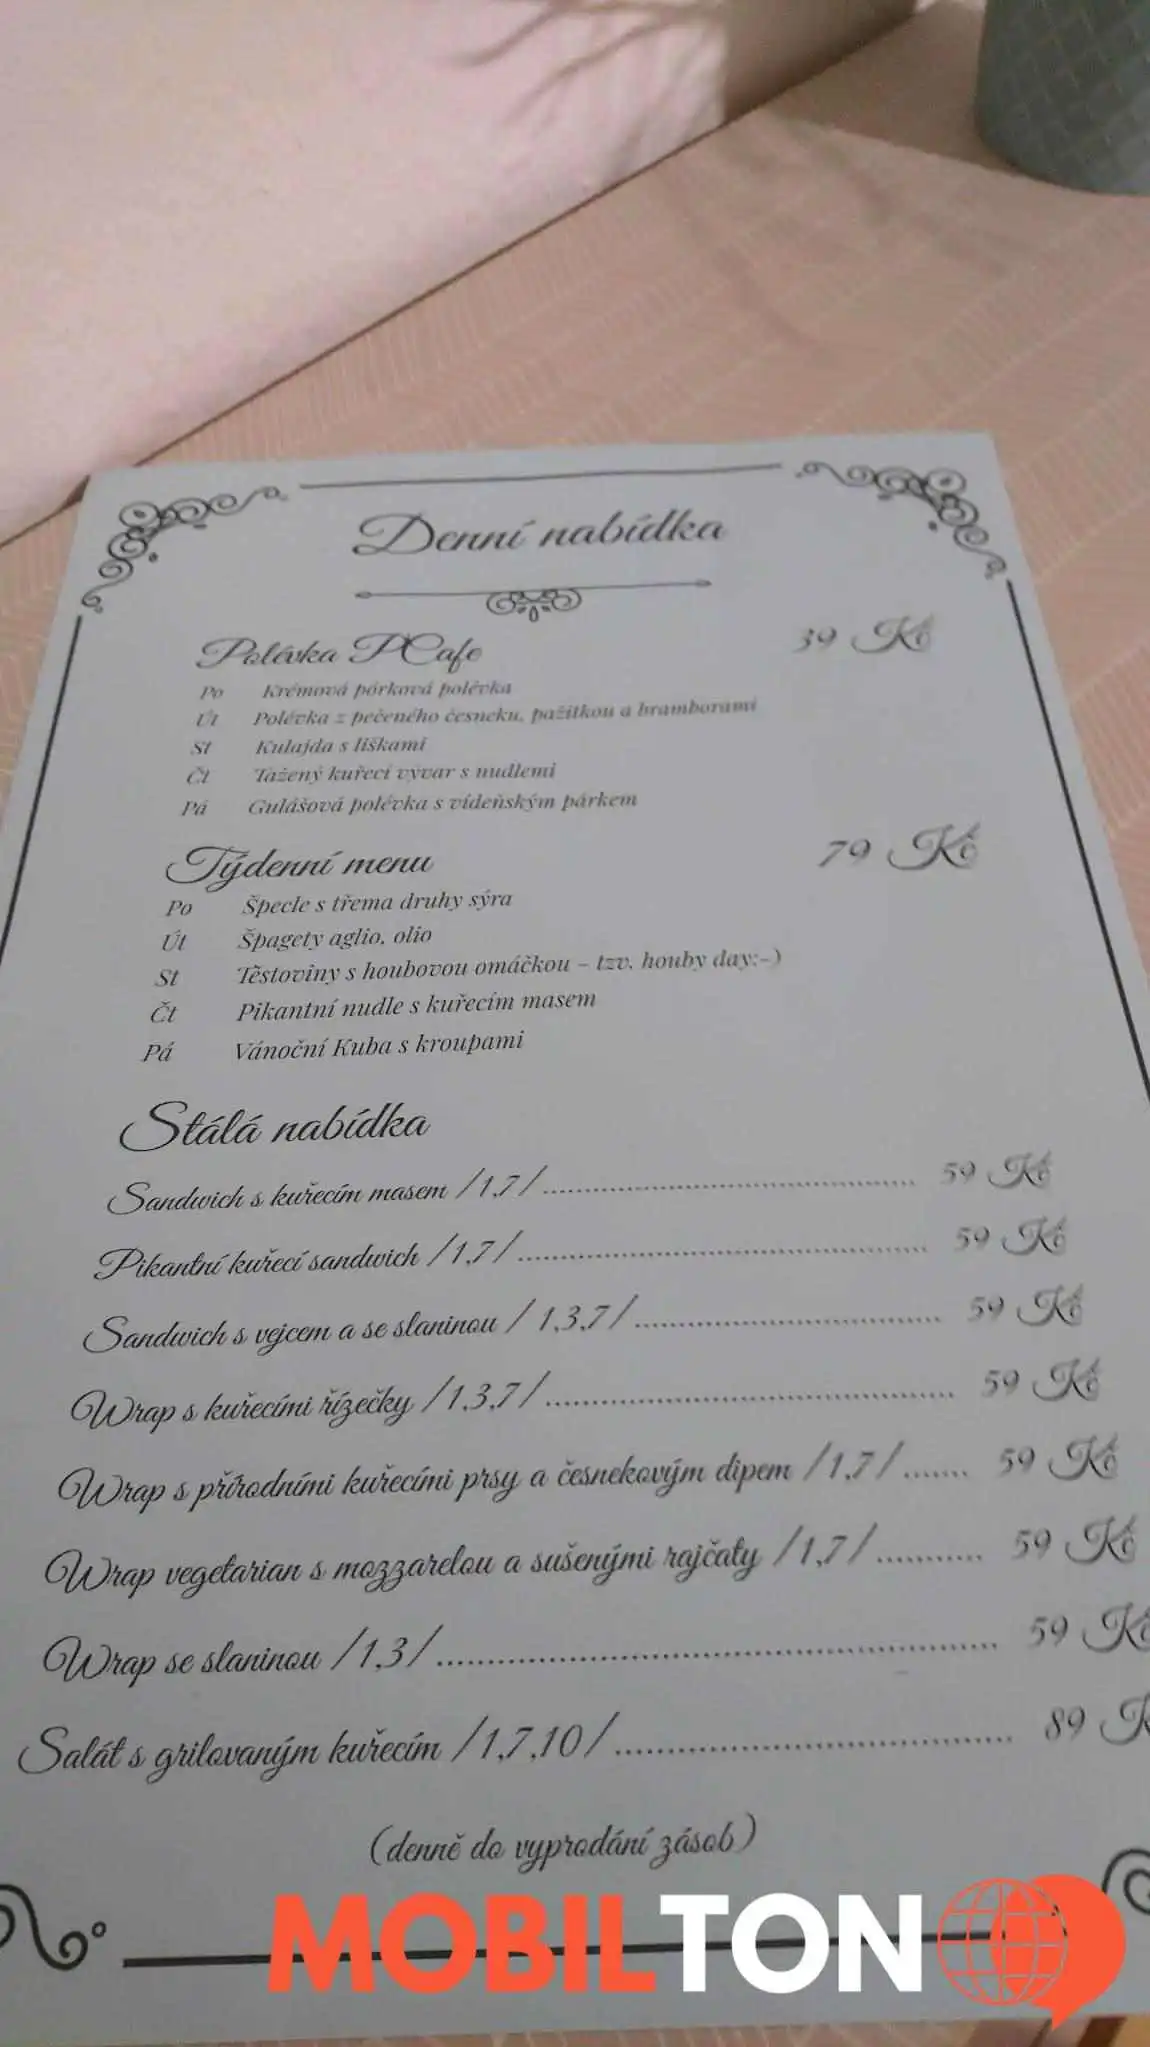 Denní nabídka
Polévka PCafe 39 Kč
Po Krémová pórková polévka
Út Polévka z pečeného česneku, pažitkou a bramborami
St Kulajda s liškami
Čt Tažený kuřecí vývar s nudlemi
Pá Gulášová polévka s vídeňským párkem
Týdenní menu 79 Kč
Po Špecle s třema druhy sýra
Út Špagety aglio, olio
St Těstoviny s houbovou omáčkou – tzv. houby day:-)
Čt Pikantní nudle s kuřecím masem
Pá Vánoční Kuba s kroupami
Stálá nabídka
Sandwich s kuřecím masem /1,7/ ........................................ 59 Kč
Pikantní kuřecí sandwich /1,7/ ........................................ 59 Kč
Sandwich s vejcem a se slaninou / 1,3,7/ .............................. 59 Kč
Wrap s kuřecími řízečky /1,3,7/ ........................................ 59 Kč
Wrap s přírodními kuřecími prsy a česnekovým dipem /1,7/ ....... 59 Kč
Wrap vegetarian s mozzarelou a sušenými rajčaty /1,7/ ........... 59 Kč
Wrap se slaninou /1,3/ .................................................. 59 Kč
Salát s grilovaným kuřecím /1,7,10/ ................................... 89 K
(denně do vyprodání zásob)
MOBILTON